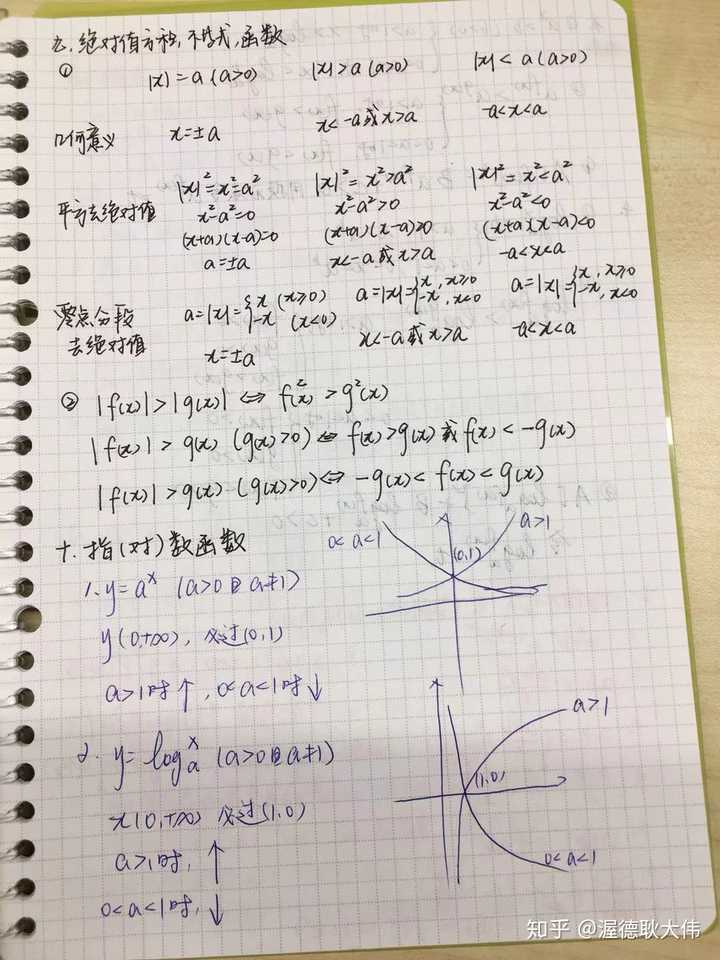 五. 绝对值方程, 不等式, 函数
①
|x|=a (a>0) |x|>a (a>0) |x|<a (a>0)
几何意义 x=±a x<-a或x>a -a<x<a
平方去绝对值 |x|²=x²=a² |x|²=x²>a² |x|²=x²<a²
x²-a²=0 x²-a²>0 x²-a²<0
(x+a)(x-a)=0 (x+a)(x-a)>0 (x+a)(x-a)<0
a=±a x<-a或x>a -a<x<a
零点分段 a=|x|={x (x≥0) a=|x|={x, x≥0 a=|x|={x, x≥0
-x (x<0) -x, x<0 -x, x<0
去绝对值 x=±a x<-a或x>a -a<x<a
② |f(x)|>|g(x)| ⇔ f²(x)>g²(x)
|f(x)|>g(x) (g(x)>0) ⇔ f(x)>g(x)或f(x)<-g(x)
|f(x)|>g(x) (g(x)>0) ⇔ -g(x)<f(x)<g(x)
十. 指(对)数函数
0<a<1 a>1
(0,1)
1. y=aˣ (a>0且a≠1)
y(0,+∞), 必过(0,1)
a>1时↑, 0<a<1时↓
a>1
(1,0)
0<a<1
2. y=logₐˣ (a>0且a≠1)
x(0,+∞) 必过(1,0)
a>1时, ↑
0<a<1时, ↓
知乎 @渥德耿大伟